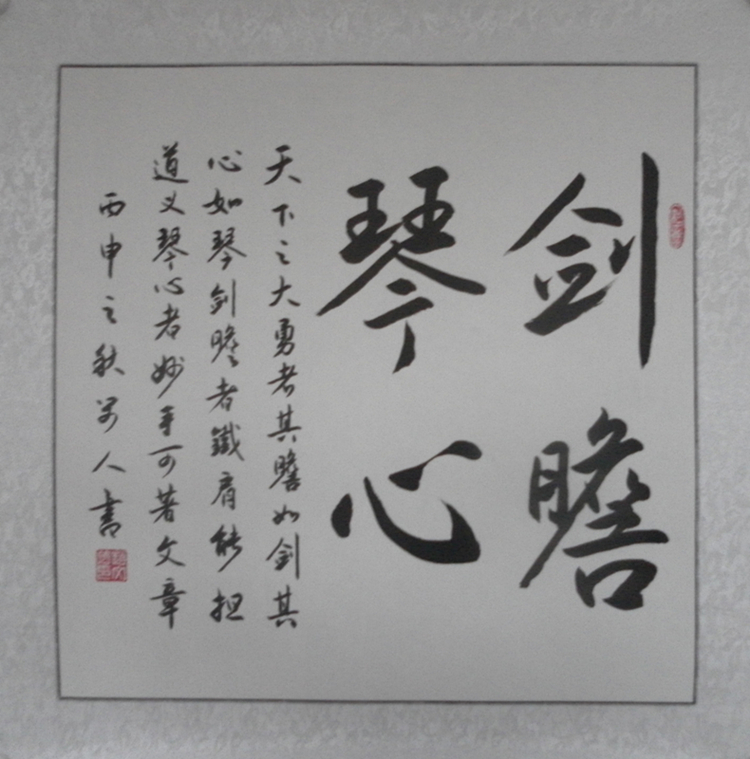 剑膽
琴心
天下之大勇者其膽如剑其
心如琴剑膽者鐵肩能担
道义琴心者妙手可著文章
丙申之秋 人書